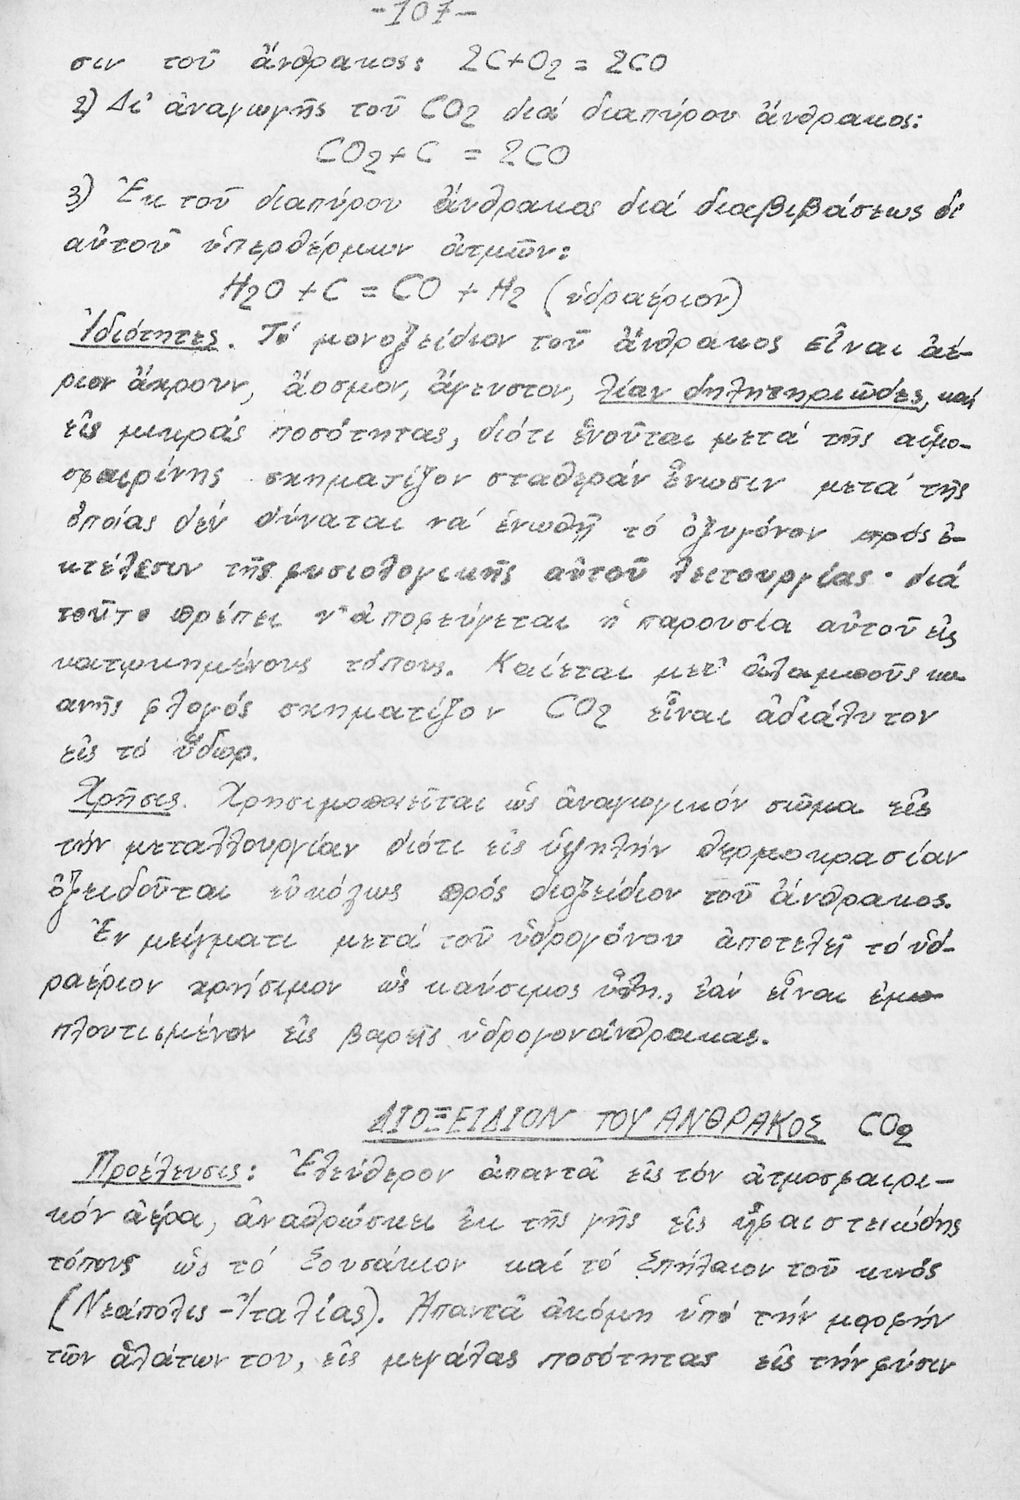 -107-
σιν τοῦ ἄνθρακος: 2C+O2 = 2CO
2) Δι' ἀναγωγῆς τοῦ CO2 διά διαπύρου ἄνθρακος:
CO2+C = 2CO
3) Ἐκ τοῦ διαπύρου ἄνθρακος διά διαβιβάσεως δι'
αὐτοῦ ὑπερθέρμων ἀτμῶν:
H2O + C = CO + H2 (ὑδραέριον)
Ἰδιότητες. Τό μονοξείδιον τοῦ ἄνθρακος εἶναι ἀέ-
ριον ἄχρουν, ἄοσμον, ἄγευστον, λίαν δηλητηριῶδες, καί
εἰς μικράς ποσότητας, διότι ἑνοῦται μετά τῆς αἱμο-
σφαιρίνης σχηματίζον σταθεράν ἕνωσιν μετά τῆς
ὁποίας δέν δύναται νά ἑνωθῇ τό ὀξυγόνον πρός ἐ-
κτέλεσιν τῆς φυσιολογικῆς αὐτοῦ λειτουργίας· διά
τοῦτο πρέπει ν' ἀποφεύγεται ἡ παρουσία αὐτοῦ εἰς
κατῳκημένους τόπους. Καίεται μετ' ἀλαμποῦς κυ-
ανῆς φλογός σχηματίζον CO2 εἶναι ἀδιάλυτον
εἰς τό ὕδωρ.
Χρῆσις. Χρησιμοποιεῖται ὡς ἀναγωγικόν σῶμα εἰς
τήν μεταλλουργίαν διότι εἰς ὑψηλήν θερμοκρασίαν
ὀξειδοῦται εὐκόλως πρός διοξείδιον τοῦ ἄνθρακος.
Ἐν μείγματι μετά τοῦ ὑδρογόνου ἀποτελεῖ τό ὑδ-
ραέριον χρήσιμον ὡς καύσιμος ὕλη, ἐάν εἶναι ἐμ-
πλουτισμένον εἰς βαρεῖς ὑδρογονάνθρακας.
ΔΙΟΞΕΙΔΙΟΝ ΤΟΥ ΑΝΘΡΑΚΟΣ CO2
Προέλευσις: Ἐλεύθερον ἀπαντᾶ εἰς τόν ἀτμοσφαιρι-
κόν ἀέρα, ἀναθρώσκει ἐκ τῆς γῆς εἰς ἡφαιστειώδης
τόπους ὡς τό Σουσάκιον καί τό Σπήλαιον τοῦ κυνός
(Νεάπολις - Ἰταλίας). Ἀπαντᾶ ἀκόμη ὑπό τήν μορφήν
τῶν ἁλάτων του, εἰς μεγάλας ποσότητας εἰς τήν φύσιν